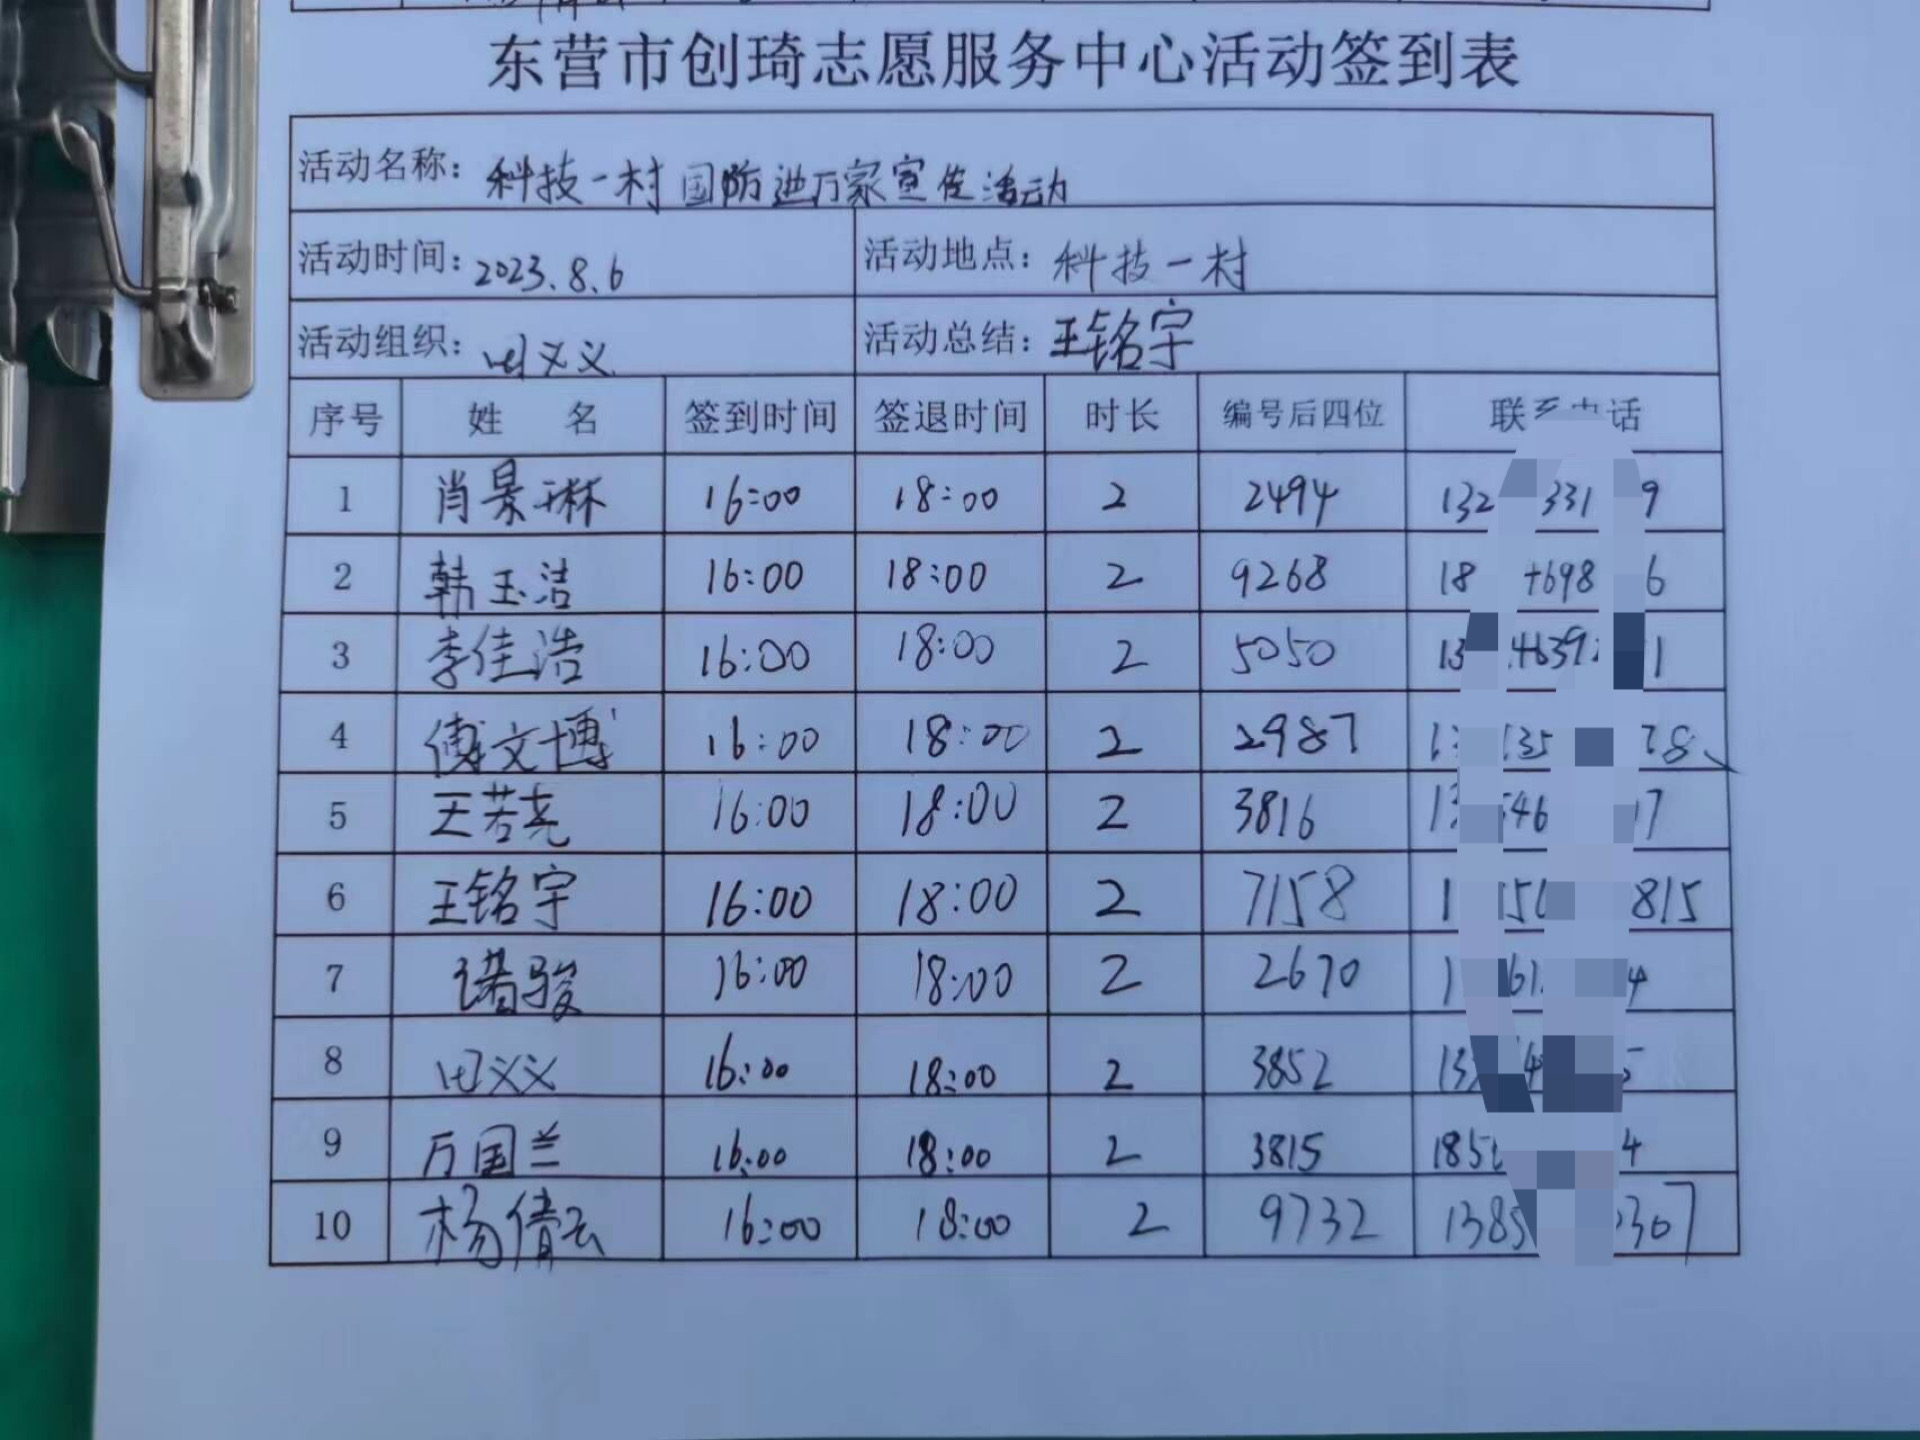 东营市创琦志愿服务中心活动签到表
活动名称：科技一村国防进万家宣传活动
活动时间：2023.8.6 活动地点：科技一村
活动组织：田义义 活动总结：王铭宇
序号 姓名 签到时间 签退时间 时长 编号后四位 联系 话
1 肖景琳 16:00 18:00 2 2494 132 331 9
2 韩玉洁 16:00 18:00 2 9268 18 698 6
3 李佳浩 16:00 18:00 2 5050 13 4639 1
4 傅文博 16:00 18:00 2 2987 1 35 78
5 王若尧 16:00 18:00 2 3816 1 546 17
6 王铭宇 16:00 18:00 2 7158 1 815
7 诸骏 16:00 18:00 2 2670 1 61 4
8 田义义 16:00 18:00 2 3852 13 4 5
9 万国兰 16:00 18:00 2 3815 185 4
10 杨倩云 16:00 18:00 2 9732 1385 307